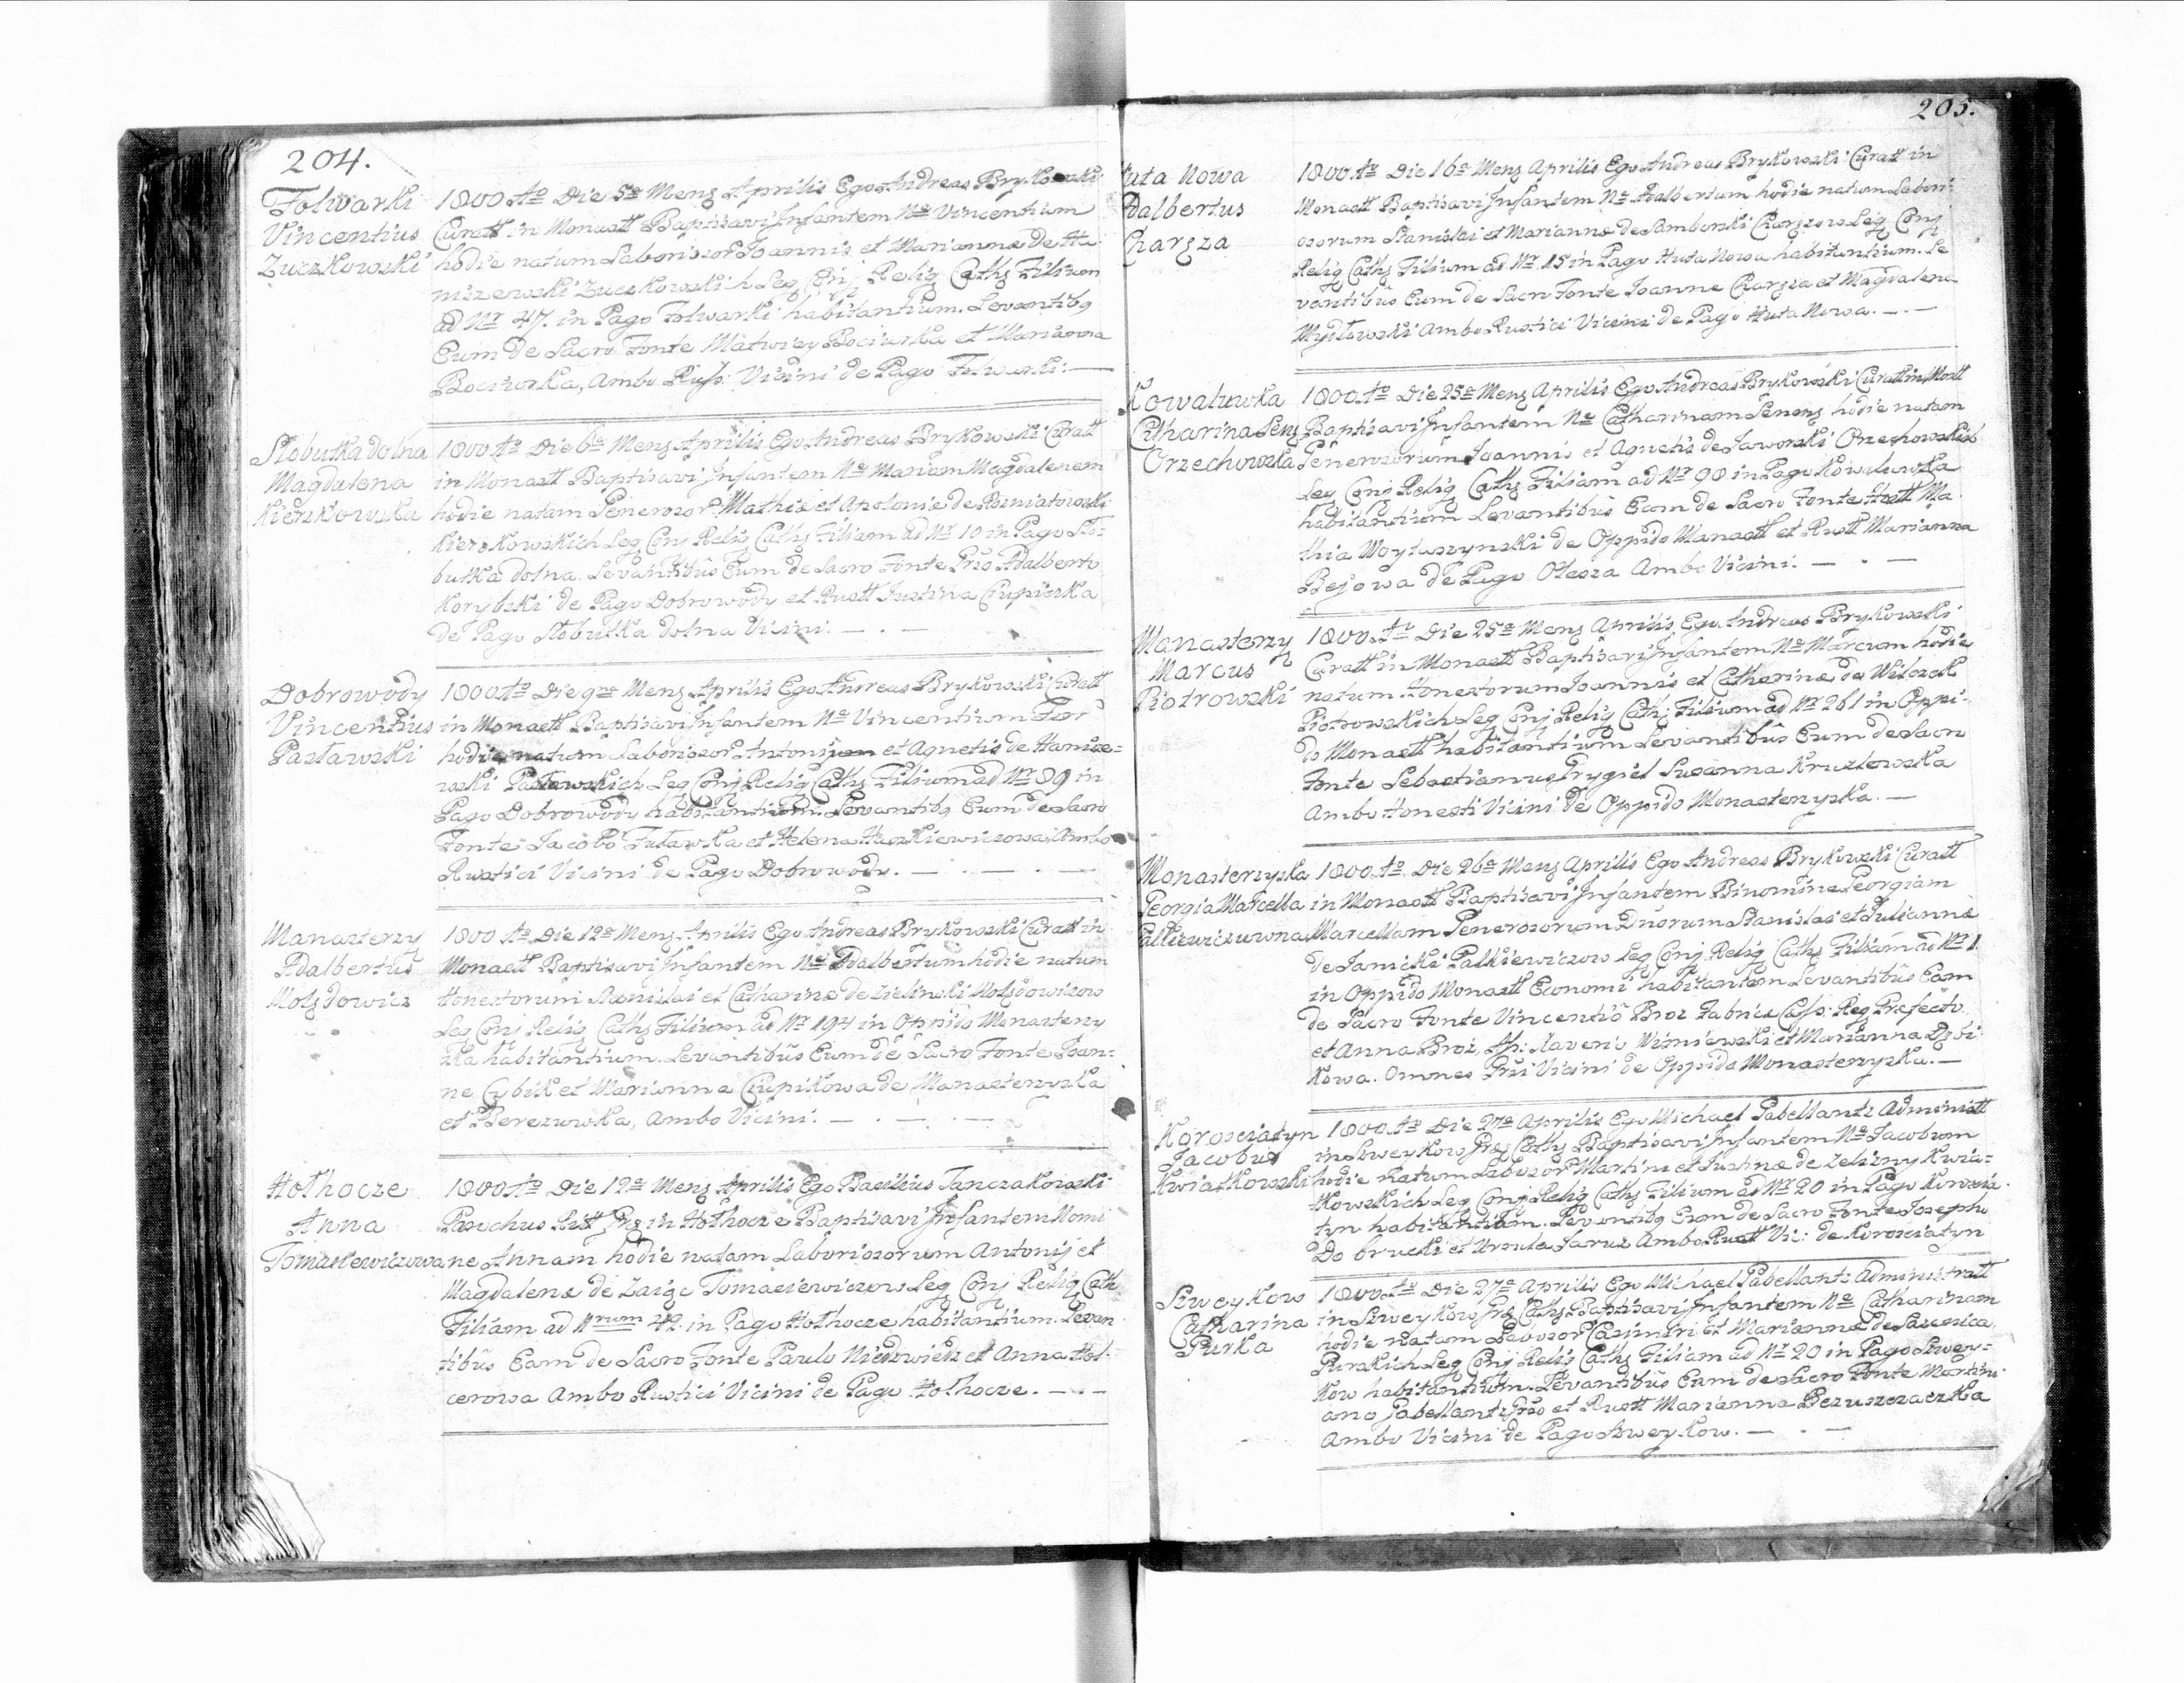 204.
Folwarki
Vincentius
Zuczkowski
1800 Ao Die 5a Mens Aprilis Ego Andreas Brykowski
Curatt in Monastt Baptisavi Infantem Ne Vincentium
hodie natum Laborioszor Joannis et Mariannæ De Ha
niszewski Zuczkowskich Leg Conj Relig Caths Filium
ad Nr 47. in Pago Folwarki habitantium. Levantibg
Eum De Sacro Fonte Matwiey Bociurka et Marianna
Bociurka, Ambo Russ: Vicini de Pago Folwarki: —
Slobutka dolna
Magdalena
Kierzkowska
1800 Ao Die 6a Mens Aprilis Ego Andreas Brykowski Curatt
in Monastt Baptisavi Infantem Ne Mariam Magdalenam
hodie natam Generosor Mathiæ et Apoloniæ de Poniatowski
Kierzkowskich Leg Conj Relig Caths Filiam ad Nr 10 in Pago Slo-
butka dolna. Levantibus Eum de Sacro Fonte Gnso Adalberto
Korybski de Pago Dobrowody et Rustt Justina Czupirka
de Pago Slobutka dolna Vicini. — . —
Dobrowody
Vincentius
Pastawski
1800 Ao Die 9na Mens Aprilis Ego Andreas Brykowski Curatt
in Monastt Baptisavi Infantem Ne Vincentium Ferr
hodie natum Laboriosor Antonij et Agnetis de Hanisze=
wski Pastawskich Leg Conj Relig Caths Filium ad Nr 89 in
Pago Dobrowody habitantium. Levantibg Eum de Sacro
Fonte Jacobo Futawka et Helena Haszkiewiczowa, Ambo
Rustici Vicini de Pago Dobrowody. — . — . —
Manasterzy
Adalbertus
Molzdowicz
1800 Ao Die 12a Mens Aprilis Ego Andreas Brykowski Curatt in
Monastt Baptisavi Infantem Ne Adalbertum hodie natum
Honestorum Stanislai et Catharinæ de Zielinski Molzdowiczow
Leg Conj Relig Caths Filium ad Nr 194 in Oppido Monasterzy
ska habitantium. Levantibus Eum de Sacro Fonte Joan=
ne Cybik et Marianna Czupikowa de Manasterzyska
et Berezuwka, Ambo Vicini. — . — . —
Hothocze
Anna
Tomasiewiczowa
1800 Ao Die 12a Mens Aprilis Ego Basilius Tanczakowski
Parochus Ritt Grs in Hothocze Baptisavi Infantem Nomi
ne Annam hodie natam Laboriosorum Antonij et
Magdalenæ de Zaige Tomasiewiczow Leg Conj Relig Cath
Filiam ad Nrum 42 in Pago Hothocze habitantium. Levan
tibus Eam de Sacro Fonte Paulo Niedzwiedz et Anna Hol-
cerowa Ambo Rustici Vicini de Pago Hothocze. — . —
205.
uta Nowa
Adalbertus
Charzza
1800 Ao Die 16a Mens Aprilis Ego Andreas Brykowski Curatt in
Monastt Baptisavi Infantem Ne Adalbertum hodie natum Labori-
osorum Stanislai et Mariannæ de Samborski Charzzow Leg Conj
Relig Caths Filium ad Nr 15 in Pago Huta Nowa habitantium. Le
vantibus Eum de Sacro Fonte Joanne Charzza et Magdalena
Mydlowski Ambo Rustici Vicini de Pago Huta Nowa. — . —
Kowaluwka
Catharina Sens
Orzechowska
1800 Ao Die 25a Mens Aprilis Ego Andreas Brykowski Curatt in Monstt
Baptisavi Infantem Ne Catharinam Senens hodie natam
Generosorum Joannis et Agnetis de Jaworski Orzechowskich
Leg Conj Relig Caths Filiam ad Nr 98 in Pago Kowaluwka
habitantium Levantibus Eam de Sacro Fonte Hostt Ma-
thia Woytuszynski de Oppido Manastt et Rustt Marianna
Bejowa de Pago Olesza Ambo Vicini. — . —
Manasterzy
Marcus
Piotrowski
1800 Ao Die 25a Mens Aprilis Ego Andreas Brykowski
Curatt in Monastt Baptisavi Infantem Ne Marcum hodie
natum. Honestorum Joannis et Catharinæ de Witczok
Piotrowskich Leg Conj Relig Caths Filium ad Nr 261 in Oppi-
do Monastt habitantium Levantibus Eum de Sacro
Fonte Sebastianus Frygiel Susanna Kruzlewska
Ambo Honesti Vicini de Oppido Monasterzyska. —
Monasterzyska
Georgia Marcella
Palkiewiczuwna
1800 Ao Die 26a Mens Aprilis Ego Andreas Brykowski Curatt
in Monastt Baptisavi Infantem Binomine Georgiam
Marcellam Generosorum Dnorum Stanislai et Juliannæ
de Janicki Palkiewiczow Leg Conj Relig Caths Filiam ad Nr 1.
in Oppido Monastt Economi habitantem Levantibus Eam
de Sacro Fonte Vincentio Broz Fabricæ Cass: Reg Præfecto
et Anna Broz, Ass: Xaverio Wisniewski et Marianna Dzbi-
kowa. Omnes Gnsi Vicini de Oppido Monasterzyska. —
Korosciatyn
Jacobus
Kwiatkowski
1800 Ao Die 27a Aprilis Ego Michael Gabellantz Administt
in Szweykow Grs Caths Baptisavi Infantem Ne Jacobum
hodie natum Laboosor Martini et Justinæ de Zelizny Kwia=
tkowskich Leg Conj Relig Caths Filium ad Nr 20 in Pago Korosia
tyn habitantium. Levantibg Eum de Sacro Fonte Josepho
Dobrucki et Ursula Jaruz Ambo Rustt Vic: de Korosciatyn
Szweykow
Catharina
Purka
1800 Ao Die 27a Aprilis Ego Michael Gabellants Administratt
in Szweykow Grs Caths Baptisavi Infantem Ne Catharinam
hodie natam Labosor Casimiri et Mariannæ de Sawica
Purskich Leg Conj Relig Caths Filiam ad Nr 20 in Pago Szwey=
kow habitantium. Levantibus Eum de Sacro Fonte Martini-
ano Gabellants Gnso et Rustt Marianna Bezuszczaczka
Ambo Vicini de Pago Szweykow. — . —